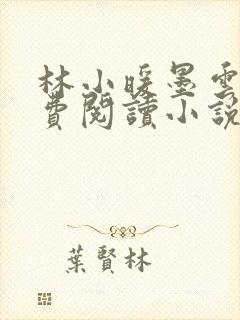 林小暖墨雲
費閱讀小說
葉賢林